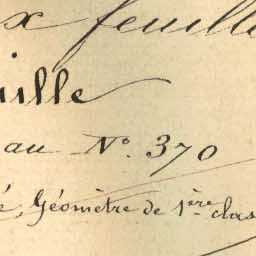 x feuille
uille
au N°. 370
é, Géomètre de 1ère clas